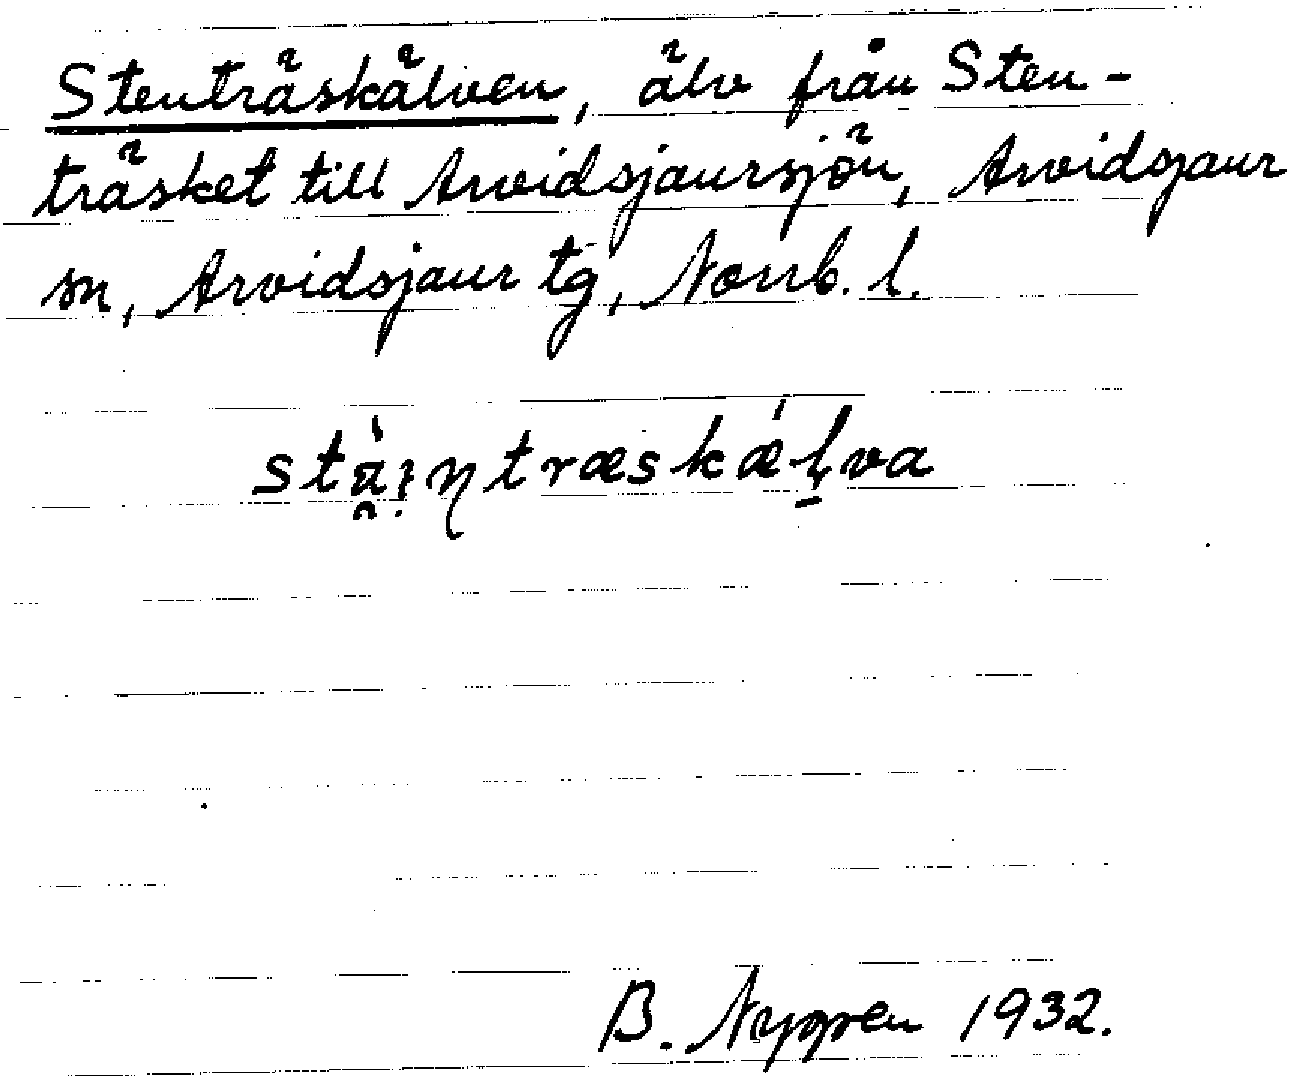 Stenträskälven, älv från Sten-
träsket till Arvidsjaursjön, Arvidsjaur
sn, Arvidsjaur tg, Norrb. l.
B. Nygren 1932.